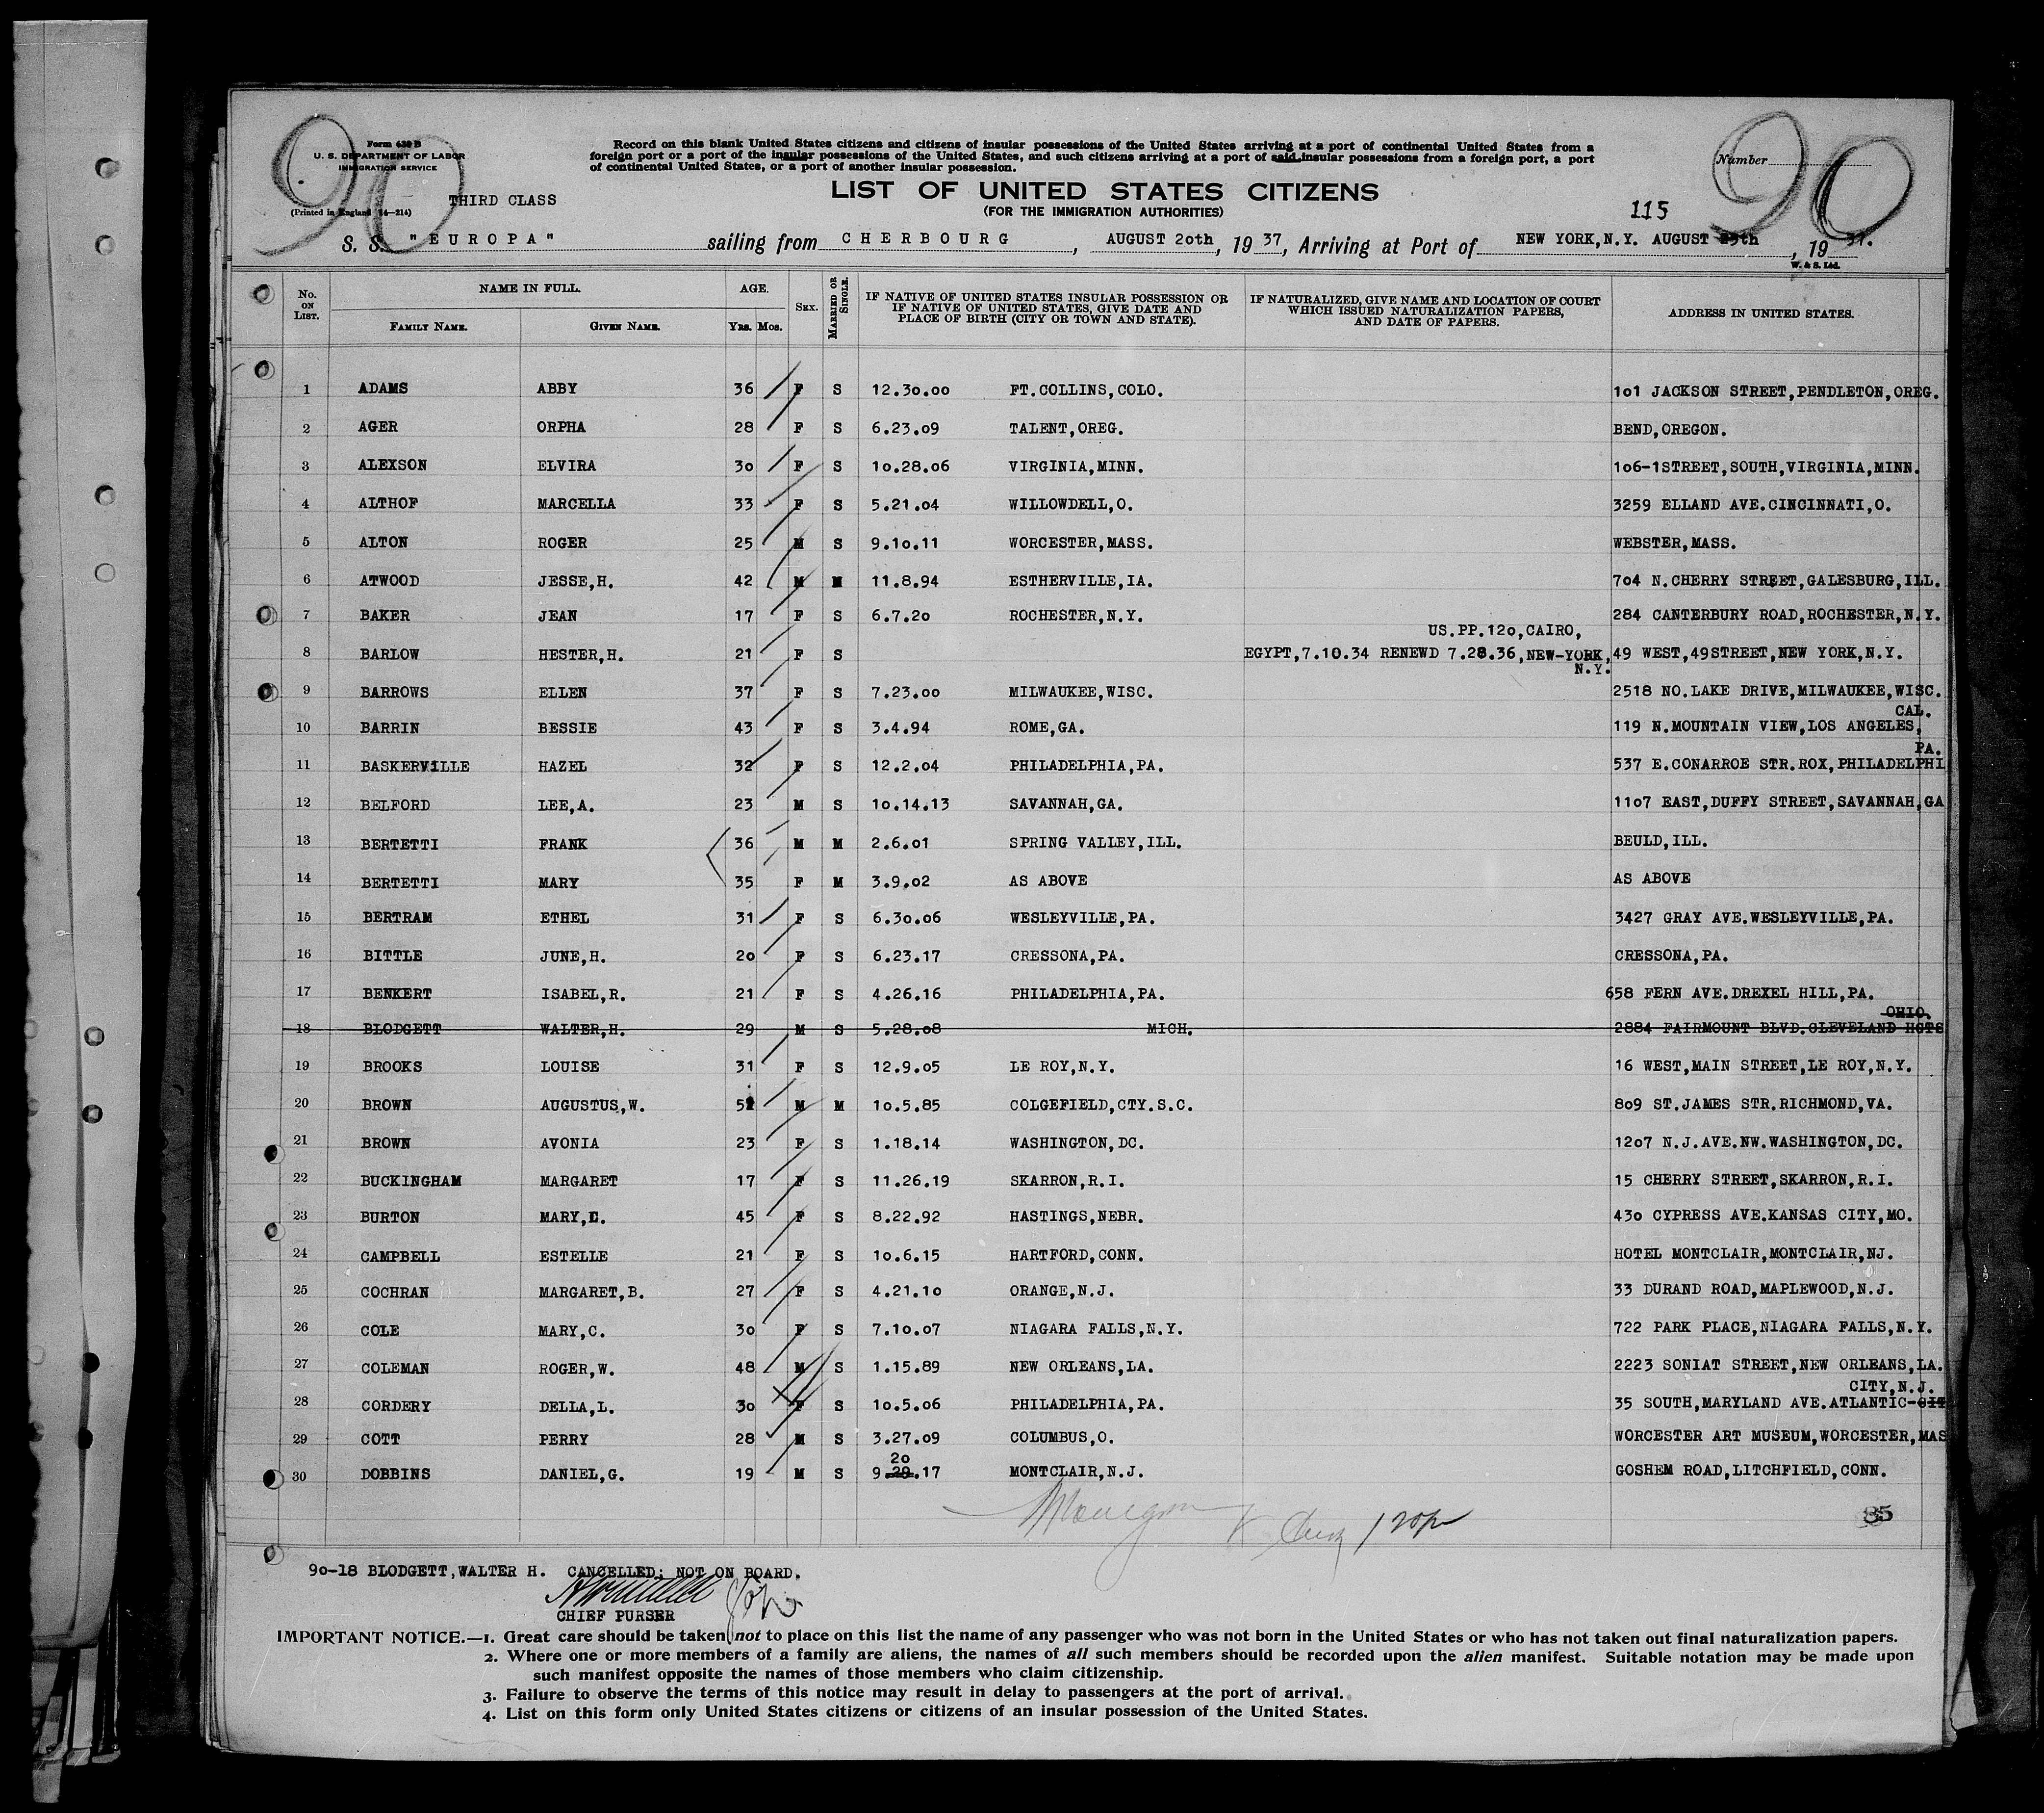 90
90
Form 630 B
U. S. DEPARTMENT OF LABOR
IMMIGRATION SERVICE
(Printed in England 14—214)
THIRD CLASS
Record on this blank United States citizens and citizens of insular possessions of the United States arriving at a port of continental United States from a
foreign port or a port of the insular possessions of the United States, and such citizens arriving at a port of said insular possessions from a foreign port, a port
of continental United States, or a port of another insular possession.
Number
LIST OF UNITED STATES CITIZENS
(FOR THE IMMIGRATION AUTHORITIES)
115
S. S. "EUROPA" sailing from CHERBOURG, AUGUST 20th, 19 37, Arriving at Port of NEW YORK,N.Y. AUGUST 25th, 19 37.
W. & S. Ltd.
No. ON LIST. NAME IN FULL. FAMILY NAME. GIVEN NAME. AGE. YRS. MOS. SEX. MARRIED OR SINGLE. IF NATIVE OF UNITED STATES INSULAR POSSESSION OR IF NATIVE OF UNITED STATES, GIVE DATE AND PLACE OF BIRTH (CITY OR TOWN AND STATE). IF NATURALIZED, GIVE NAME AND LOCATION OF COURT WHICH ISSUED NATURALIZATION PAPERS, AND DATE OF PAPERS. ADDRESS IN UNITED STATES.
1 ADAMS ABBY 36 F S 12.30.00 FT.COLLINS,COLO. 101 JACKSON STREET,PENDLETON,OREG.
2 AGER ORPHA 28 F S 6.23.09 TALENT,OREG. BEND,OREGON.
3 ALEXSON ELVIRA 30 F S 10.28.06 VIRGINIA,MINN. 106-1STREET,SOUTH,VIRGINIA,MINN.
4 ALTHOF MARCELLA 33 F S 5.21.04 WILLOWDELL,O. 3259 ELLAND AVE.CINCINNATI,O.
5 ALTON ROGER 25 M S 9.10.11 WORCESTER,MASS. WEBSTER,MASS.
6 ATWOOD JESSE,H. 42 M M 11.8.94 ESTHERVILLE,IA. 704 N.CHERRY STREET,GALESBURG,ILL.
7 BAKER JEAN 17 F S 6.7.20 ROCHESTER,N.Y. 284 CANTERBURY ROAD,ROCHESTER,N.Y.
US.PP.120,CAIRO,
8 BARLOW HESTER,H. 21 F S EGYPT,7.10.34 RENEWD 7.28.36,NEW-YORK, 49 WEST,49STREET,NEW YORK,N.Y.
N.Y.
9 BARROWS ELLEN 37 F S 7.23.00 MILWAUKEE,WISC. 2518 NO.LAKE DRIVE,MILWAUKEE,WISC.
CAL.
10 BARRIN BESSIE 43 F S 3.4.94 ROME,GA. 119 N.MOUNTAIN VIEW,LOS ANGELES,
PA.
11 BASKERVILLE HAZEL 32 F S 12.2.04 PHILADELPHIA,PA. 537 E.CONARROE STR.ROX,PHILADELPHI
12 BELFORD LEE,A. 23 M S 10.14.13 SAVANNAH,GA. 1107 EAST,DUFFY STREET,SAVANNAH,GA
13 BERTETTI FRANK 36 M M 2.6.01 SPRING VALLEY,ILL. BEULD,ILL.
14 BERTETTI MARY 35 F M 3.9.02 AS ABOVE AS ABOVE
15 BERTRAM ETHEL 31 F S 6.30.06 WESLEYVILLE,PA. 3427 GRAY AVE.WESLEYVILLE,PA.
16 BITTLE JUNE,H. 20 F S 6.23.17 CRESSONA,PA. CRESSONA,PA.
17 BENKERT ISABEL,R. 21 F S 4.26.16 PHILADELPHIA,PA. 658 FERN AVE.DREXEL HILL,PA.
OHIO.
18 BLODGETT WALTER,H. 29 M S 5.28.08 MICH. 2884 FAIRMOUNT BLVD.CLEVELAND HGTS
19 BROOKS LOUISE 31 F S 12.9.05 LE ROY,N.Y. 16 WEST,MAIN STREET,LE ROY,N.Y.
20 BROWN AUGUSTUS,W. 51 M M 10.5.85 COLGEFIELD,CTY.S.C. 809 ST.JAMES STR.RICHMOND,VA.
21 BROWN AVONIA 23 F S 1.18.14 WASHINGTON,DC. 1207 N.J.AVE.NW.WASHINGTON,DC.
22 BUCKINGHAM MARGARET 17 F S 11.26.19 SKARRON,R.I. 15 CHERRY STREET,SKARRON,R.I.
23 BURTON MARY, 45 F S 8.22.92 HASTINGS,NEBR. 430 CYPRESS AVE.KANSAS CITY,MO.
24 CAMPBELL ESTELLE 21 F S 10.6.15 HARTFORD,CONN. HOTEL MONTCLAIR,MONTCLAIR,NJ.
25 COCHRAN MARGARET,B. 27 F S 4.21.10 ORANGE,N.J. 33 DURAND ROAD,MAPLEWOOD,N.J.
26 COLE MARY,C. 30 F S 7.10.07 NIAGARA FALLS,N.Y. 722 PARK PLACE,NIAGARA FALLS,N.Y.
27 COLEMAN ROGER,W. 48 M S 1.15.89 NEW ORLEANS,LA. 2223 SONIAT STREET,NEW ORLEANS,LA.
CITY,N.J.
28 CORDERY DELLA,L. 30 F S 10.5.06 PHILADELPHIA,PA. 35 SOUTH,MARYLAND AVE.ATLANTIC-CIT
29 COTT PERRY 28 M S 3.27.09 COLUMBUS,O. WORCESTER ART MUSEUM,WORCESTER,MAS
20
30 DOBBINS DANIEL,G. 19 M S 9.29.17 MONTCLAIR,N.J. GOSHEM ROAD,LITCHFIELD,CONN.
85
90-18 BLODGETT,WALTER H. CANCELLED; NOT ON BOARD.
CHIEF PURSER
IMPORTANT NOTICE.—1. Great care should be taken not to place on this list the name of any passenger who was not born in the United States or who has not taken out final naturalization papers.
2. Where one or more members of a family are aliens, the names of all such members should be recorded upon the alien manifest. Suitable notation may be made upon
such manifest opposite the names of those members who claim citizenship.
3. Failure to observe the terms of this notice may result in delay to passengers at the port of arrival.
4. List on this form only United States citizens or citizens of an insular possession of the United States.